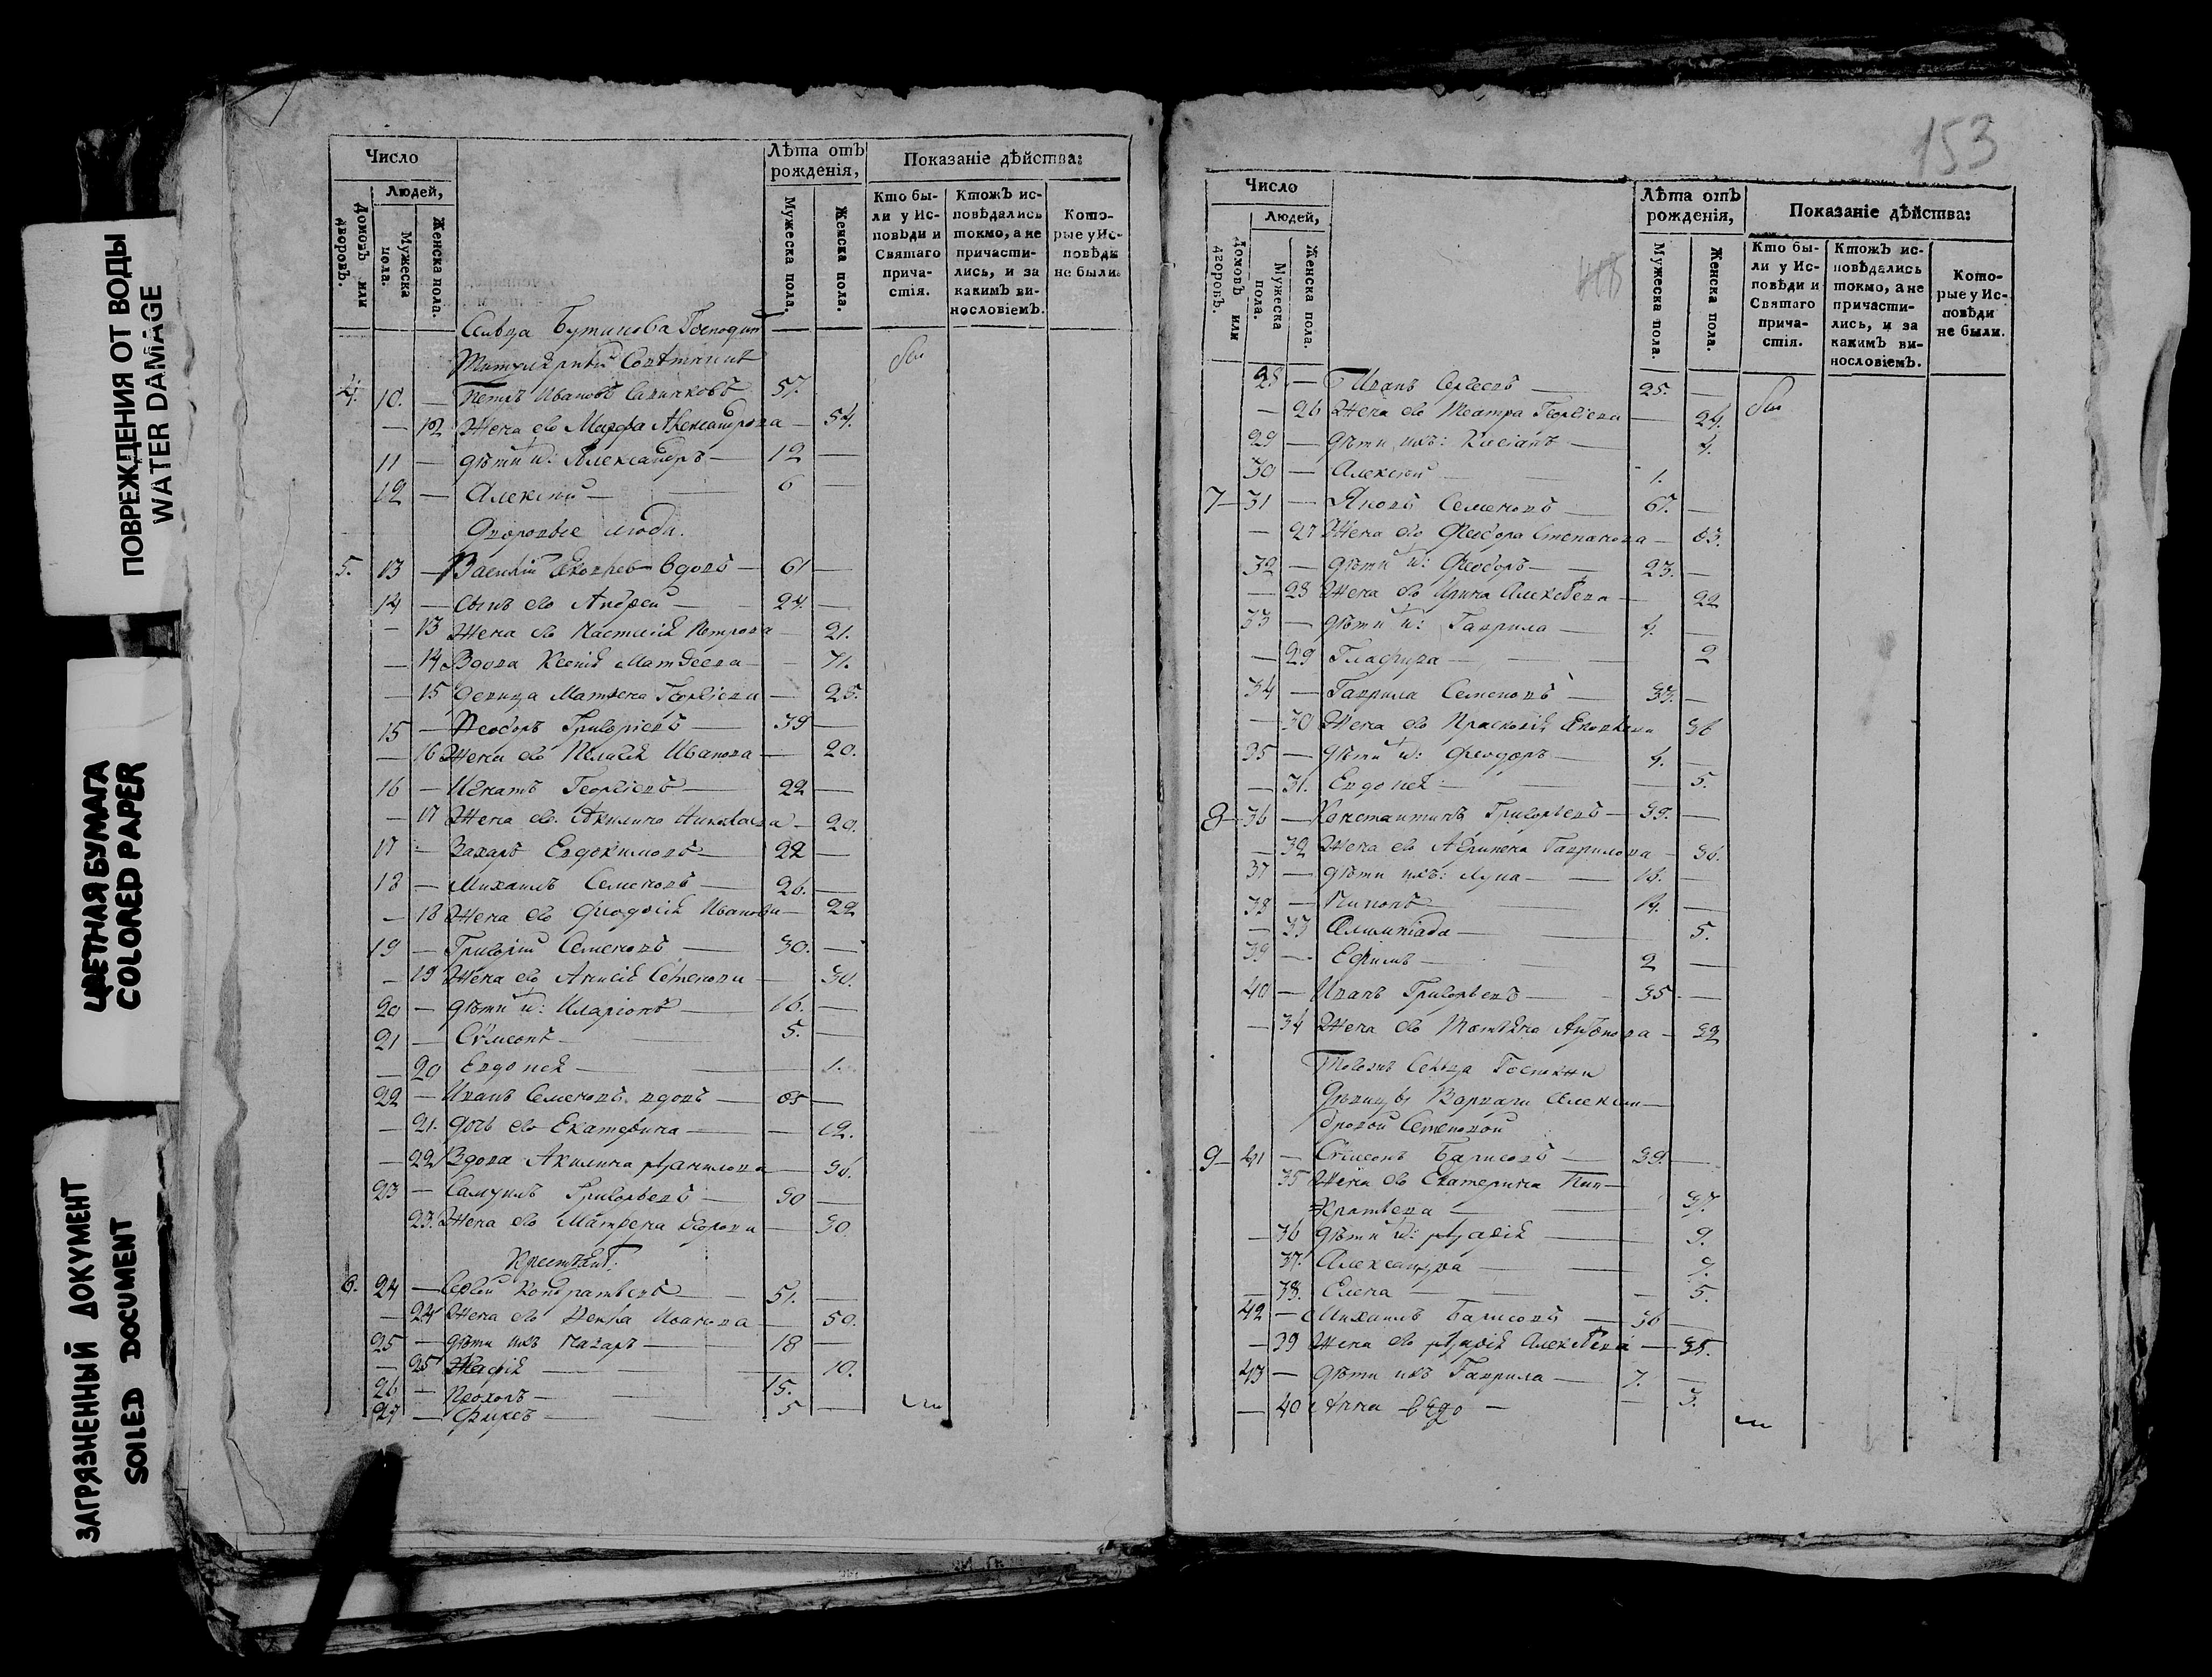 ПОВРЕЖДЕНИЯ ОТ ВОДЫ
WATER DAMAGE
ЦВЕТНАЯ БУМАГА
COLORED PAPER
ЗАГРЯЗНЕННЫЙ ДОКУМЕНТ
SOILED DOCUMENT
Число
Людей,
Домовъ или дворовъ.
Мужеска пола.
Женска пола.
Лѣта отъ рожденія,
Мужеска пола.
Женска пола.
Показаніе дѣйства:
Кто были у Исповѣди и Святаго причастія.
Ктожъ исповѣдались токмо, а не причастились, и за какимъ винословіемъ.
Которые у Исповѣди не были.
Сельца Бутикова Господинъ
Титулярный Совѣтникъ
4. 10. — Петръ Ивановъ 57.
— 12 Жена его Марфа Александрова — 54.
11 — дѣти и: Александръ — 12 —
12 — Алексѣй — 6 —
Дворовые люди.
5. 13 — Василій вдовъ — 61 —
14 — Сынъ его Андрей — 24. —
— 13 Жена его Настасія Петрова — 21.
— 14 Вдова Ксенія Матвеева — 71.
— 15 Матрена Георгіева — 25.
15 — Феодоръ Григорьевъ — 39 —
— 16 Жена его Пелагія Иванова — 20.
16 — Игнатъ Георгіевъ — 22 —
— 17 Жена его Акилина Николаева — 20.
17 — Захаръ Евдокимовъ — 22 —
18 — Михаилъ Семеновъ — 26. —
— 18 Жена его Феодосія Иванова — 22
19 — Григорій Семеновъ — 30. —
— 19 Жена его Анисія Семенова — 30.
20 — дѣти и: Иларіонъ — 16. —
21 — Сѵмеонъ — 5. —
— 20 Евдокія — 1.
22 — Иванъ Семеновъ вдовъ —
— 21. дочь его Екатерина — 12.
— 22 Вдова Акилина Данилова — 36.
23 — Самуилъ Григорьевъ — 30 —
23. Жена его Матрена — 30
Крестьянѣ:
6. 24 — Сергѣй Кондратьевъ — 51. —
— 24 Жена его Иванова — 50.
25 — дѣти ихъ Назаръ — 18 —
— 25 — 10.
26 — Прохоръ — 15.
27 — Фирсъ — 5 —
153
Число
Людей,
Домовъ или дворовъ.
Мужеска пола.
Женска пола.
Лѣта отъ рожденія,
Мужеска пола.
Женска пола.
Показаніе дѣйства:
Кто были у Исповѣди и Святаго причастія.
Ктожъ исповѣдались токмо, а не причастились, и за какимъ винословіемъ.
Которые у Исповѣди не были.
28 — Иванъ Сергеевъ — 25. —
— 26 Жена его Георгіева — 24.
29 — дѣти ихъ: Касіанъ — 4.
30 — Алексѣй — 1.
7 — 31 — Яковъ Семеновъ — 67. —
— 27 Жена его Феодора Степанова — 63.
32 — дѣти и: Феодоръ — 23. —
— 28 Жена его Ирина Алексѣева — 22
33 — дѣти и: Гаврила — 4. —
— 29 Глафира — 2
34 — Гаврила Семеновъ — 33. —
— 30 Жена его Прасковія Яковлева 36
35 — дѣти и: Феодоръ — 4. —
— 31. Евдокія — 5.
8 — 36 — Константинъ Григорьевъ — 39. —
— 32 Жена его Агрипена Гаврилова — 36.
37 — дѣти ихъ: Лука — 16. —
38 — Пименъ — 14. —
— 33 Олимпіада — 5.
39 — Ефимъ — 2 —
40 — Иванъ Григорьевъ — 35 —
— 34 Жена его Татіана Антонова — 32
Тогожъ Сельца Госпожи
Дѣвицы Варвары Алексан-
дровой
9 — 41 — Сѵмеонъ Барисовъ — 39. —
35 Жена его Екатерина Пан-
кратьева — 37.
— 36 дѣти и: Дарія — 9.
37. Александра — 7.
— 38. Елена — 5.
42 — Михаилъ Барисовъ — 36 —
— 39 Жена его Дарія Алексѣева — 35.
43 — дѣти ихъ Гаврила — 7. —
— 40 Анна — 3.